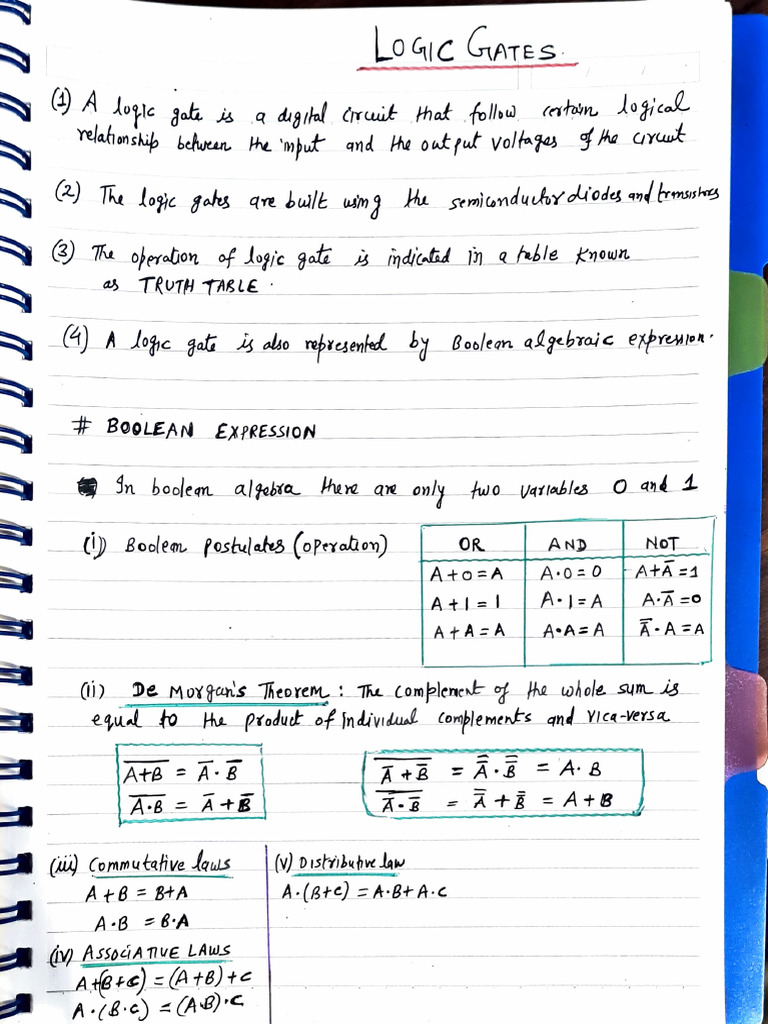 LOGIC GATES.
(1) A logic gate is a digital circuit that follow certain logical
relationship between the input and the output voltages of the circuit
(2) The logic gates are built using the semiconductor diodes and transistors
(3) The operation of logic gate is indicated in a table known
as TRUTH TABLE.
(4) A logic gate is also represented by Boolean algebraic expression.
# BOOLEAN EXPRESSION
In boolean algebra there are only two variables 0 and 1
(i) Boolean postulates (operation)
OR AND NOT
A+0=A A·0=0 A+A̅=1
A+1=1 A·1=A A·A̅=0
A+A=A A·A=A A̅·A=A
(ii) De Morgan's Theorem: The complement of the whole sum is
equal to the product of individual complements and vica-versa
\overline{A+B} = A̅·B̅
\overline{A·B} = A̅+B̅
\overline{A̅+B̅} = A̿·B̿ = A·B
\overline{A̅·B̅} = A̿+B̿ = A+B
(iii) Commutative laws
A+B = B+A
A·B = B·A
(iv) ASSOCIATIVE LAWS
A+(B+C) = (A+B)+C
A·(B·C) = (A·B)·C
(v) Distributive law
A·(B+C) = A·B+A·C